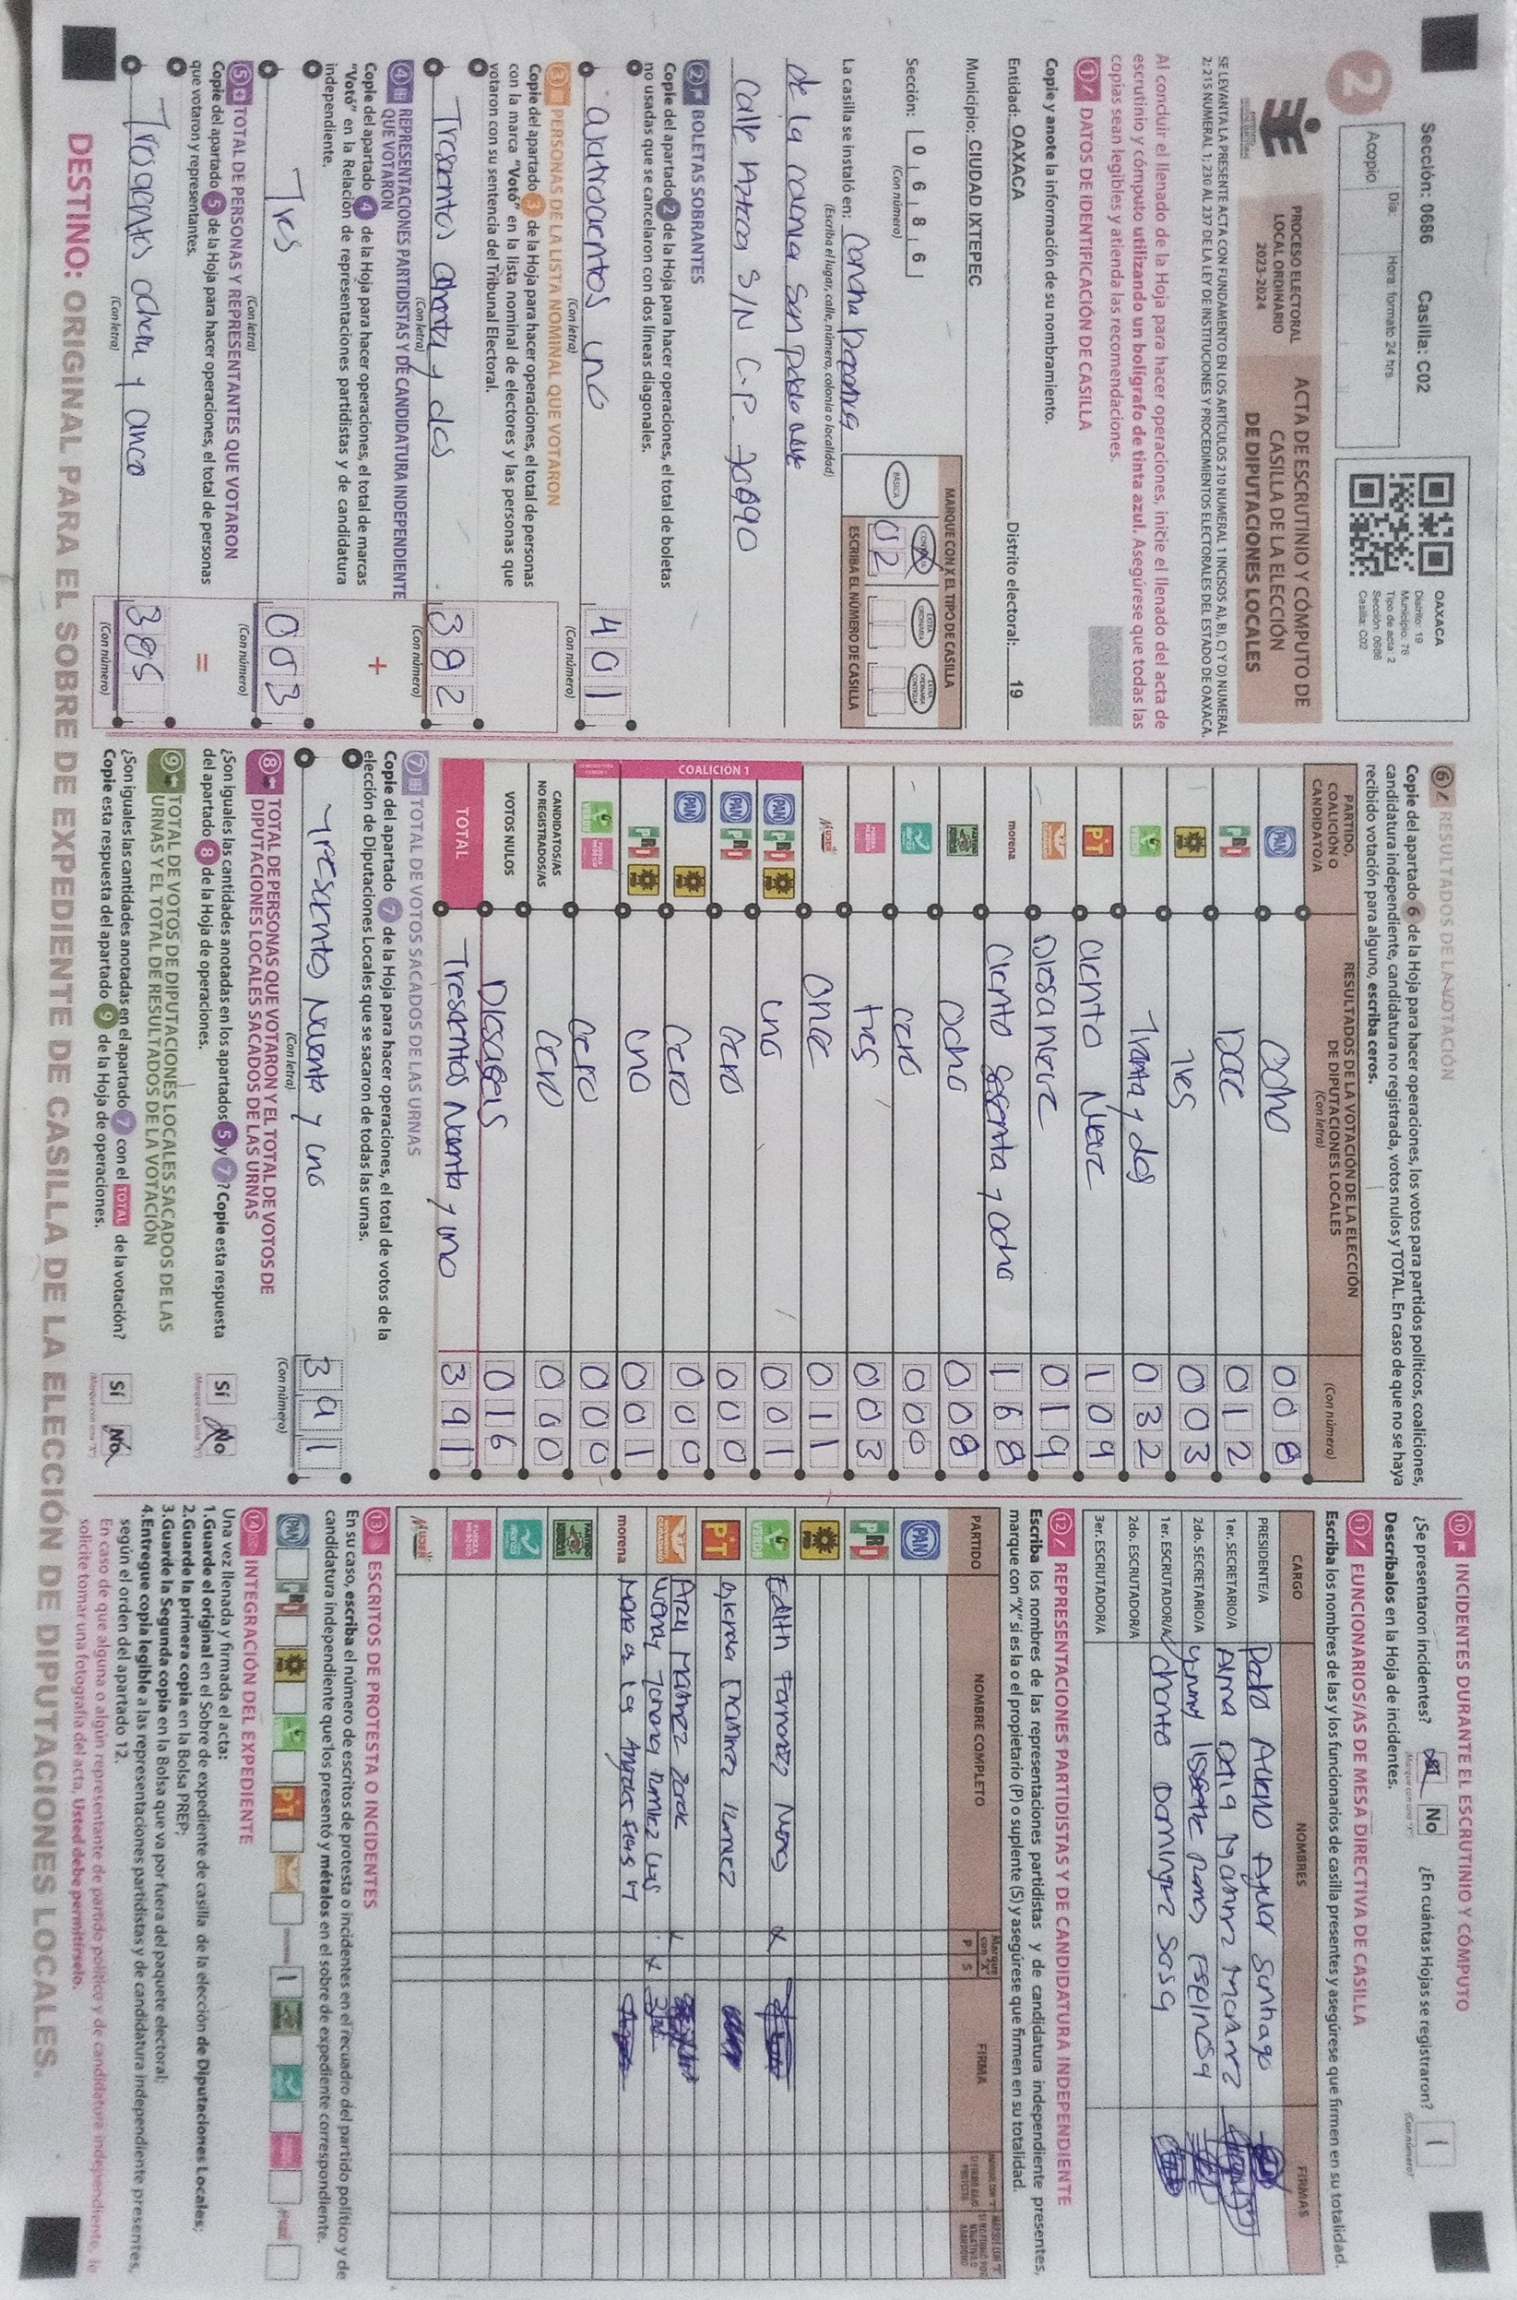 Sección: 0686 Casilla: C02
Día: Hora: formato 24 hrs
Acopio
2
OAXACA
Distrito: 19
Municipio: 76
Tipo de acta: 2
Sección: 0686
Casilla: C02
PROCESO ELECTORAL
LOCAL ORDINARIO
2023-2024
ACTA DE ESCRUTINIO Y CÓMPUTO DE
CASILLA DE LA ELECCIÓN
DE DIPUTACIONES LOCALES
SE LEVANTA LA PRESENTE ACTA CON FUNDAMENTO EN LOS ARTÍCULOS 210 NUMERAL 1 INCISOS A), B), C) Y D) NUMERAL
2; 215 NUMERAL 1; 230 AL 237 DE LA LEY DE INSTITUCIONES Y PROCEDIMIENTOS ELECTORALES DEL ESTADO DE OAXACA.
Al concluir el llenado de la Hoja para hacer operaciones, inicie el llenado del acta de
escrutinio y cómputo utilizando un bolígrafo de tinta azul. Asegúrese que todas las
copias sean legibles y atienda las recomendaciones.
1 DATOS DE IDENTIFICACIÓN DE CASILLA
Copie y anote la información de su nombramiento.
Entidad: OAXACA Distrito electoral: 19
Municipio: CIUDAD IXTEPEC
Sección: 0 6 8 6
(Con número)
MARQUE CON X EL TIPO DE CASILLA
BÁSICA
ESCRIBA EL NÚMERO DE CASILLA
02
La casilla se instaló en: Cancha Deportiva
(Escriba el lugar, calle, número, colonia o localidad)
de la colonia San Pablo
Calle S/N C.P.
2 BOLETAS SOBRANTES
Copie del apartado 2 de la Hoja para hacer operaciones, el total de boletas
no usadas que se cancelaron con dos líneas diagonales.
cuatrocientos uno 401
(Con letra) (Con número)
3 PERSONAS DE LA LISTA NOMINAL QUE VOTARON
Copie del apartado 3 de la Hoja para hacer operaciones, el total de personas
con la marca "Votó" en la lista nominal de electores y las personas que
votaron con su sentencia del Tribunal Electoral.
Tresientos ochenta y dos 382
(Con letra) (Con número)
4 REPRESENTACIONES PARTIDISTAS Y DE CANDIDATURA INDEPENDIENTE
QUE VOTARON
Copie del apartado 4 de la Hoja para hacer operaciones, el total de marcas
"Votó" en la Relación de representaciones partidistas y de candidatura
independiente.
+
Tres 003
(Con letra) (Con número)
5 TOTAL DE PERSONAS Y REPRESENTANTES QUE VOTARON
Copie del apartado 5 de la Hoja para hacer operaciones, el total de personas
que votaron y representantes.
=
ochenta y cinco 385
(Con letra) (Con número)
6 RESULTADOS DE LA VOTACIÓN
Copie del apartado 6 de la Hoja para hacer operaciones, los votos para partidos políticos, coaliciones,
candidatura independiente, candidatura no registrada, votos nulos y TOTAL. En caso de que no se haya
recibido votación para alguno, escriba ceros.
PARTIDO,
COALICIÓN O
CANDIDATO/A
RESULTADOS DE LA VOTACIÓN DE LA ELECCIÓN
DE DIPUTACIONES LOCALES
(Con letra)
(Con número)
PAN ocho 008
PRI Doce 012
PRD Tres 003
VERDE Treinta y dos 032
PT ciento Nueve 109
Diesanueve 019
morena Ciento sesenta y ocho 168
ocho 008
cero 000
tres 003
once 011
COALICIÓN 1
PAN PRI PRD uno 001
PAN PRI cero 000
PAN PRD cero 000
PRI PRD uno 001
cero 000
CANDIDATOS/AS
NO REGISTRADOS/AS cero 000
VOTOS NULOS Dieseseis 016
TOTAL Tresientos Noventa y uno 391
7 TOTAL DE VOTOS SACADOS DE LAS URNAS
Copie del apartado 7 de la Hoja para hacer operaciones, el total de votos de la
elección de Diputaciones Locales que se sacaron de todas las urnas.
Tresiento Noventa y uno 391
(Con letra) (Con número)
8 TOTAL DE PERSONAS QUE VOTARON Y EL TOTAL DE VOTOS DE
DIPUTACIONES LOCALES SACADOS DE LAS URNAS
¿Son iguales las cantidades anotadas en los apartados 5 y 7? Copie esta respuesta
del apartado 8 de la Hoja de operaciones.
Sí No
9 TOTAL DE VOTOS DE DIPUTACIONES LOCALES SACADOS DE LAS
URNAS Y EL TOTAL DE RESULTADOS DE LA VOTACIÓN
¿Son iguales las cantidades anotadas en el apartado 7 con el TOTAL de la votación?
Copie esta respuesta del apartado 9 de la Hoja de operaciones.
Sí No
10 INCIDENTES DURANTE EL ESCRUTINIO Y CÓMPUTO
¿Se presentaron incidentes? No ¿En cuántas Hojas se registraron? 1
(Con número)
Descríbalos en la Hoja de incidentes.
11 FUNCIONARIOS/AS DE MESA DIRECTIVA DE CASILLA
Escriba los nombres de las y los funcionarios de casilla presentes y asegúrese que firmen en su totalidad.
CARGO NOMBRES FIRMAS
PRESIDENTE/A Santiago
1er. SECRETARIO/A Alma Delia
2do. SECRETARIO/A Espinosa
1er. ESCRUTADOR/A Dominguez Sosa
2do. ESCRUTADOR/A
3er. ESCRUTADOR/A
12 REPRESENTACIONES PARTIDISTAS Y DE CANDIDATURA INDEPENDIENTE
Escriba los nombres de las representaciones partidistas y de candidatura independiente presentes,
marque con "X" si es la o el propietario (P) o suplente (S) y asegúrese que firmen en su totalidad.
PARTIDO NOMBRE COMPLETO Marque con "X" P S FIRMA
PAN
PRI
PRD
VERDE Edith
PT
morena Maria de los Angeles
13 ESCRITOS DE PROTESTA O INCIDENTES
En su caso, escriba el número de escritos de protesta o incidentes en el recuadro del partido político y de
candidatura independiente que los presentó y métalos en el sobre de expediente correspondiente.
PAN PRI PRD VERDE PT 1
14 INTEGRACIÓN DEL EXPEDIENTE
Una vez llenada y firmada el acta:
1.Guarde el original en el Sobre de expediente de casilla de la elección de Diputaciones Locales;
2.Guarde la primera copia en la Bolsa PREP;
3.Guarde la Segunda copia en la Bolsa que va por fuera del paquete electoral;
4.Entregue copia legible a las representaciones partidistas y de candidatura independiente presentes,
según el orden del apartado 12.
En caso de que alguna o algún representante de partido político y de candidatura independiente, le
solicite tomar una fotografía del acta, Usted debe permitírselo.
DESTINO: ORIGINAL PARA EL SOBRE DE EXPEDIENTE DE CASILLA DE LA ELECCIÓN DE DIPUTACIONES LOCALES.